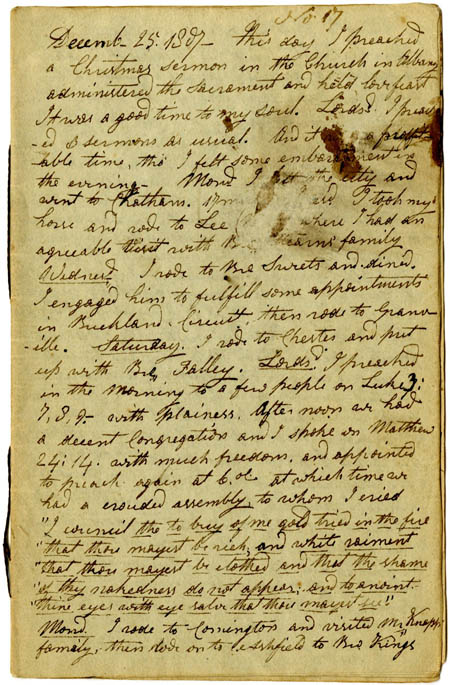 No 17
Decemb- 25. 1807- This day I preached
a Christmas sermon in the Church in Albany
administered the Sacrament and held love feast
It was a good time to my soul. Lordsd. I preac
-ed 3 sermons as usual. And it a profit-
-able time, tho I felt some embarasment in
the evening- Mond. I left the city and
went to Chatham. I took my
horse and rode to Lee where I had an
agreeable visit with Bro family
Wednesd. I rode to Bro Sweets and dined.
I engaged him to fulfill some appointments
in Buckland Circuit, then rode to Granv-
-ille. Saturday. I rode to Chester and put
up with Bro Falley. Lordsd. I preached
in the morning to a few people on Luke 3:
7, 8, 9- with plainess. After noon we had
a decent Congregation and I spoke on Matthew
24: 14. with much freedom, and appointed
to preach again at 6. oc at which time we
had a crouded assembly, to whom I cried
"I council the to buy of me gold tried in the fire
"that thou mayest be rich, and white raiment
"that thou mayest be clothed and that the shame
"of thy nakedness do not appear; and to anoint
"thine eyes with eye salve that thou mayest see"
Mond. I rode to Comington and visited Mr Knapps
family, then rode on to Ashfield to Bro Kings